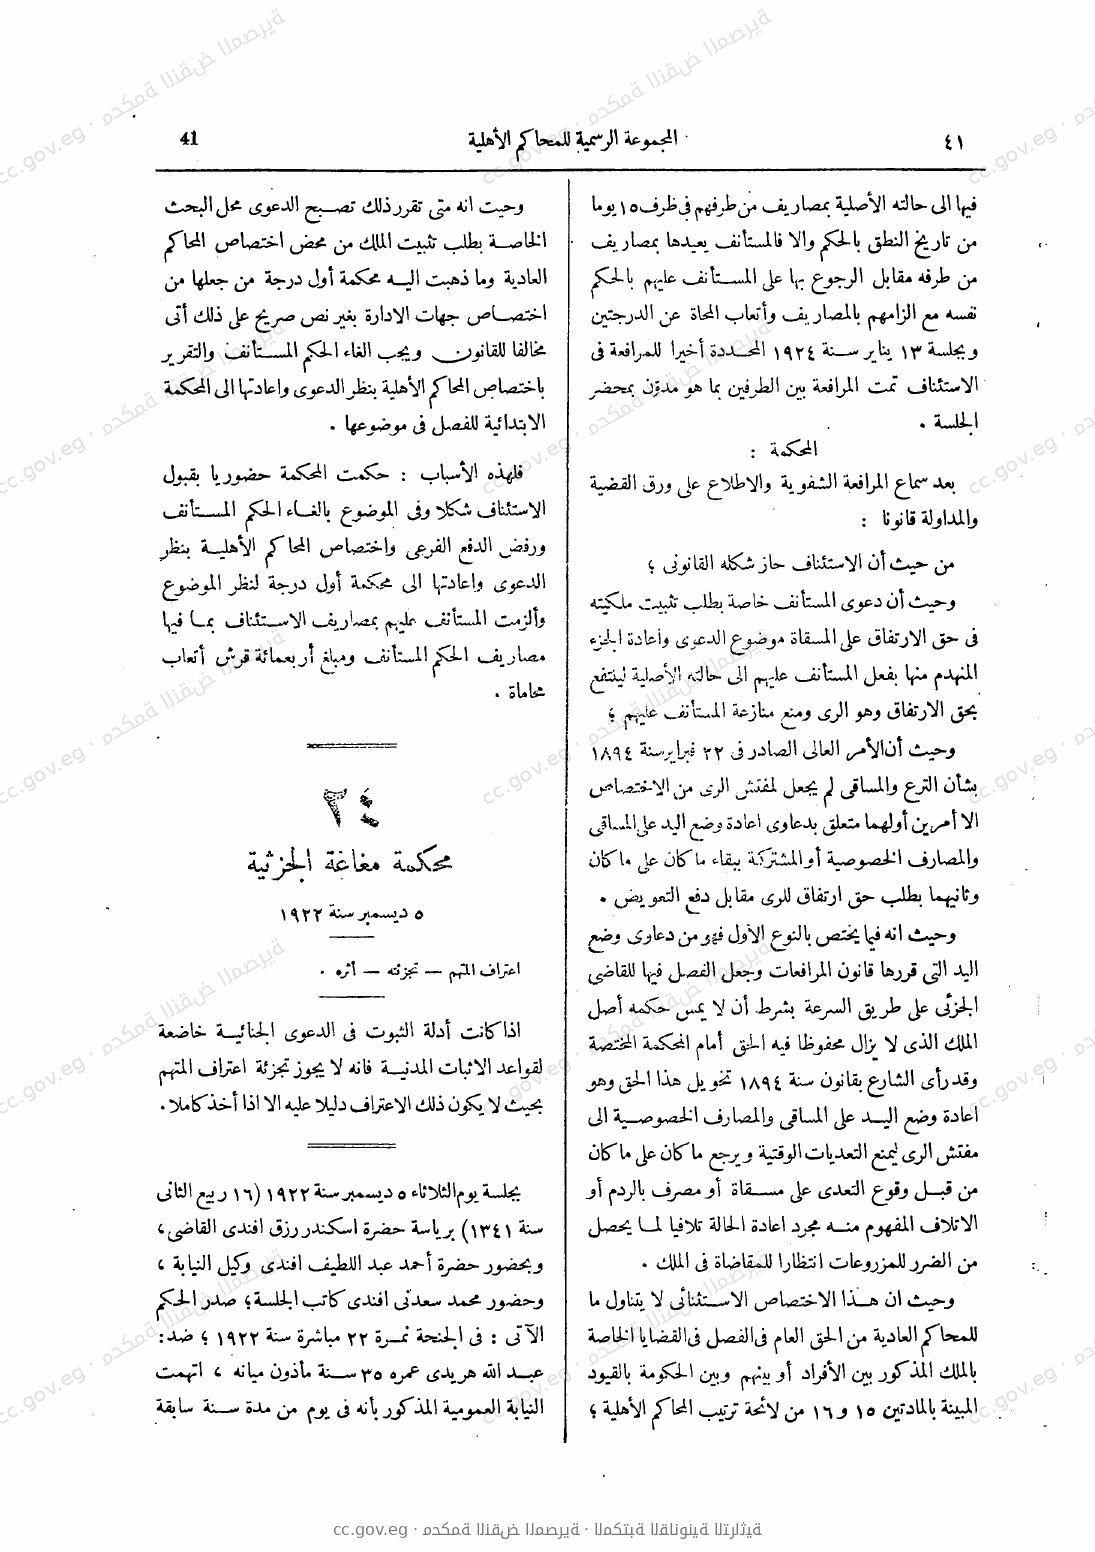 ٤١
المجموعة الرسمية للمحاكم الأهلية
41
فيها الى حالته الأصلية بمصاريف من طرفهم فى ظرف ١٥ يوما
من تاريخ النطق بالحكم والا فالمستأنف يعيدها بمصاريف
من طرفه مقابل الرجوع بها على المستأنف عليهم بالحكم
نفسه مع الزامهم بالمصاريف وأتعاب المحاة عن الدرجتين
وبجلسة ١٣ يناير سنة ١٩٢٤ المحددة أخيرا للمرافعة فى
الاستئناف تمت المرافعة بين الطرفين بما هو مدوّن بمحضر
الجلسة .
المحكمة :
بعد سماع المرافعة الشفوية والاطلاع على ورق القضية
والمداولة قانونا :
من حيث أن الاستئناف حاز شكله القانونى ؛
وحيث أن دعوى المستأنف خاصة بطلب تثبيت ملكيته
فى حق الارتفاق على المسقاة موضوع الدعوى واعادة الجزء
المنهدم منها بفعل المستأنف عليهم الى حالته الأصلية لينتفع
بحق الارتفاق وهو الرى ومنع منازعة المستأنف عليهم ؛
وحيث أن الأمر العالى الصادر فى ٢٢ فبراير سنة ١٨٩٤
بشأن الترع والمساقى لم يجعل لمفتش الرى من الاختصاص
الا أمرين أولهما متعلق بدعاوى اعادة وضع اليد على المساقى
والمصارف الخصوصية أو المشتركة ببقاء ما كان على ما كان
وثانيهما بطلب حق ارتفاق للرى مقابل دفع التعويض .
وحيث انه فيما يختص بالنوع الأول فهو من دعاوى وضع
اليد التى قررها قانون المرافعات وجعل الفصل فيها للقاضى
الجزئى على طريق السرعة بشرط أن لا يمس حكمه أصل
الملك الذى لا يزال محفوظا فيه الحق أمام المحكمة المختصة
وقد رأى الشارع بقانون سنة ١٨٩٤ تخويل هذا الحق وهو
اعادة وضع اليد على المساقى والمصارف الخصوصية الى
مفتش الرى ليمنع التعديات الوقتية ويرجع ما كان على ما كان
من قبل وقوع التعدى على مسقاة أو مصرف بالردم أو
الاتلاف المفهوم منه مجرد اعادة الحالة تلافيا لما يحصل
من الضرر للمزروعات انتظارا للمقاضاة فى الملك .
وحيث ان هذا الاختصاص الاستثنائى لا يتناول ما
للمحاكم العادية من الحق العام فى الفصل فى القضايا الخاصة
بالملك المذكور بين الأفراد أو بينهم وبين الحكومة بالقيود
المبينة بالمادتين ١٥ و ١٦ من لائحة ترتيب المحاكم الأهلية ؛
وحيث انه متى تقرر ذلك تصبح الدعوى محل البحث
الخاصة بطلب تثبيت الملك من محض اختصاص المحاكم
العادية وما ذهبت اليه محكمة أول درجة من جعلها من
اختصاص جهات الادارة بغير نص صريح على ذلك أتى
مخالفا للقانون ويجب الغاء الحكم المستأنف والتقرير
باختصاص المحاكم الأهلية بنظر الدعوى واعادتها الى المحكمة
الابتدائية للفصل فى موضوعها .
فلهذه الأسباب : حكمت المحكمة حضوريا بقبول
الاستئناف شكلا وفى الموضوع بالغاء الحكم المستأنف
ورفض الدفع الفرعى واختصاص المحاكم الأهلية بنظر
الدعوى واعادتها الى محكمة أول درجة لنظر الموضوع
وألزمت المستأنف عليهم بمصاريف الاستئناف بما فيها
مصاريف الحكم المستأنف ومبلغ أربعمائة قرش أتعاب
محاماة .
٣٤
محكمة مغاغة الجزئية
٥ ديسمبر سنة ١٩٢٢
اعتراف المتهم — تجزئته — أثره .
اذا كانت أدلة الثبوت فى الدعوى الجنائية خاضعة
لقواعد الاثبات المدنية فانه لا يجوز تجزئة اعتراف المتهم
بحيث لا يكون ذلك الاعتراف دليلا عليه الا اذا أخذ كاملا.
بجلسة يوم الثلاثاء ٥ ديسمبر سنة ١٩٢٢ (١٦ ربيع الثانى
سنة ١٣٤١) برياسة حضرة اسكندر رزق افندى القاضى ،
وبحضور حضرة أحمد عبد اللطيف افندى وكيل النيابة ،
وحضور محمد سعدنى افندى كاتب الجلسة ؛ صدر الحكم
الآتى : فى الجنحة نمرة ٢٢ مباشرة سنة ١٩٢٢ ؛ ضد :
عبد الله هريدى عمره ٣٥ سنة مأذون ميانه ، اتهمت
النيابة العمومية المذكور بأنه فى يوم من مدة سنة سابقة
cc.gov.eg · محكمة النقض المصرية · المكتبة القانونية التراثية